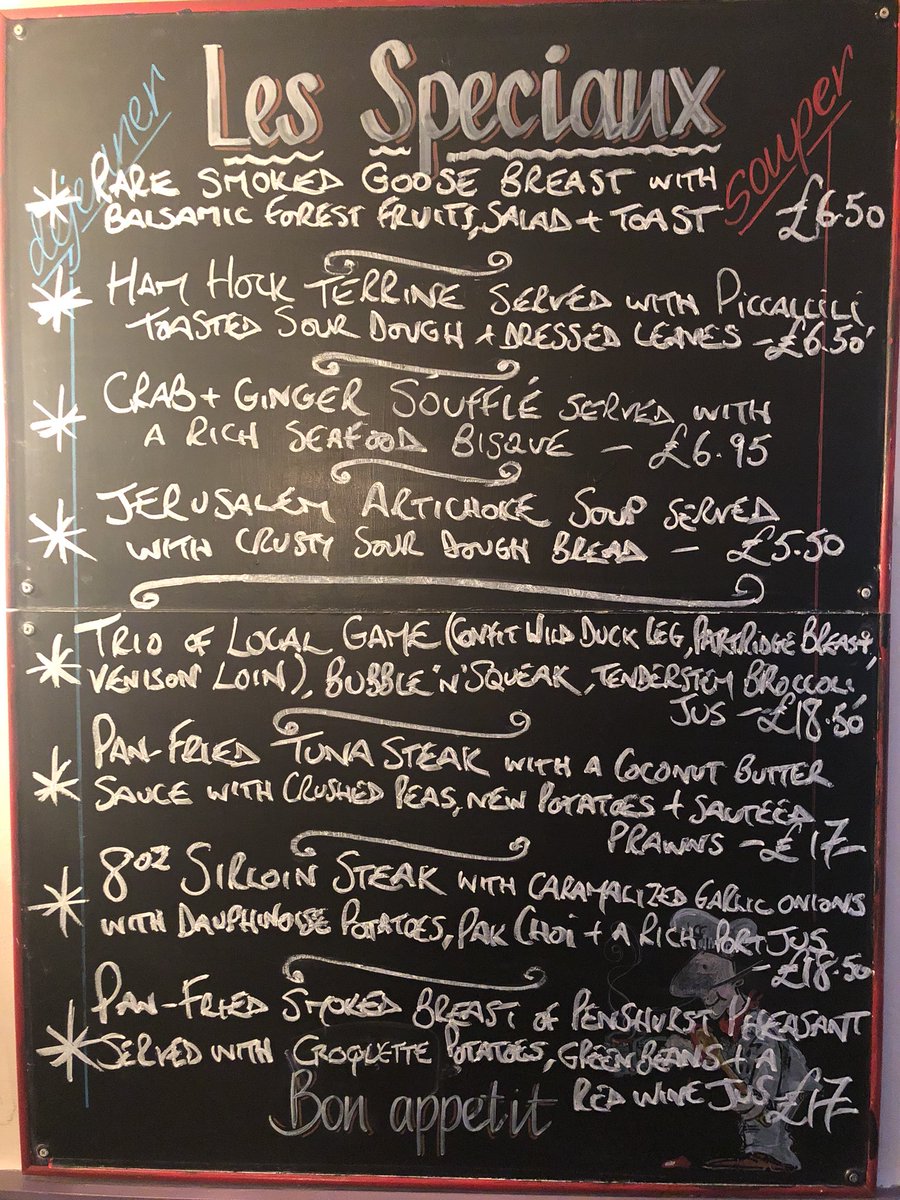 Les Speciaux
déjeuner
souper
* RARE SMOKED GOOSE BREAST WITH
BALSAMIC FOREST FRUITS, SALAD + TOAST £6.50
* HAM HOCK TERRINE SERVED WITH PICCALLILI
TOASTED SOUR DOUGH + DRESSED LEAVES - £6.50
* CRAB + GINGER SOUFFLÉ SERVED WITH
A RICH SEAFOOD BISQUE - £6.95
* JERUSALEM ARTICHOKE SOUP SERVED
WITH CRUSTY SOUR DOUGH BREAD - £5.50
* TRIO OF LOCAL GAME (CONFIT WILD DUCK LEG, PARTRIDGE BREAST,
VENISON LOIN), BUBBLE 'N' SQUEAK, TENDERSTEM BROCCOLI
JUS - £18.50
* PAN-FRIED TUNA STEAK WITH A COCONUT BUTTER
SAUCE WITH CRUSHED PEAS, NEW POTATOES + SAUTEED
PRAWNS - £17
* 8OZ SIRLOIN STEAK WITH CARAMALIZED GARLIC ONIONS
WITH DAUPHINOISE POTATOES, PAK CHOI + A RICH PORT JUS
- £18.50
* PAN-FRIED SMOKED BREAST OF PENSHURST PHEASANT
SERVED WITH CROQUETTE POTATOES, GREEN BEANS + A
RED WINE JUS £17
Bon appetit